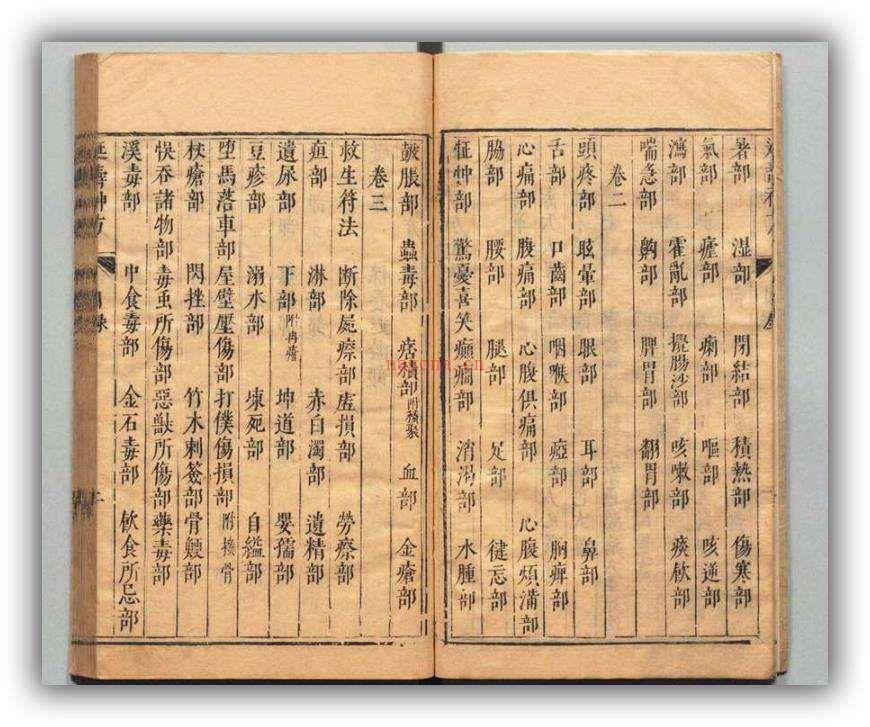 暑部 濕部 閉結部 積熱部 傷寒部
氣部 瘧部 痢部 嘔部 咳逆部
瀉部 霍亂部 攪腸沙部 咳嗽部 痰飲部
喘急部 齁部 脾胃部 翻胃部
卷二
頭疼部 眩暈部 眼部 耳部 鼻部
舌部 口齒部 咽喉部 瘂部 胸痹部
心痛部 腹痛部 心腹俱痛部 心腹煩滿部
脇部 腰部 腿部 足部 健忘部
怔忡部 驚憂喜笑癲癇部 消渴部 水腫部
皷脹部 蟲毒部 痞積部附積聚 血部 金瘡部
卷三
救生符法 斷除屍瘵部 虛損部 勞瘵部
疝部 淋部 赤白濁部 遺精部
遺尿部 下部 坤道部 嬰孺部
豆疹部 溺水部 凍死部 自縊部
墮馬落車部 屋壁壓傷部 打僕傷損部 附接骨
杖瘡部 閃挫部 竹木刺簽部 骨鯁部
悞吞諸物部 毒虫所傷部 惡獸所傷部 藥毒部
溪毒部 中食毒部 金石毒部 飲食所忌部
延壽神方 目錄 上